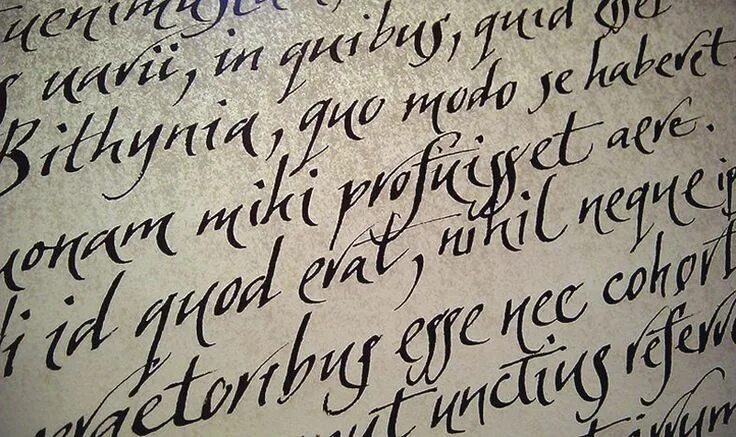 s uarii, in quibus, quid esset
Bithynia, quo modo se haberet
uonam mihi profuisset aere.
i id quod erat, nihil neque ip
raetoribus esse nec cohort
unctius referr